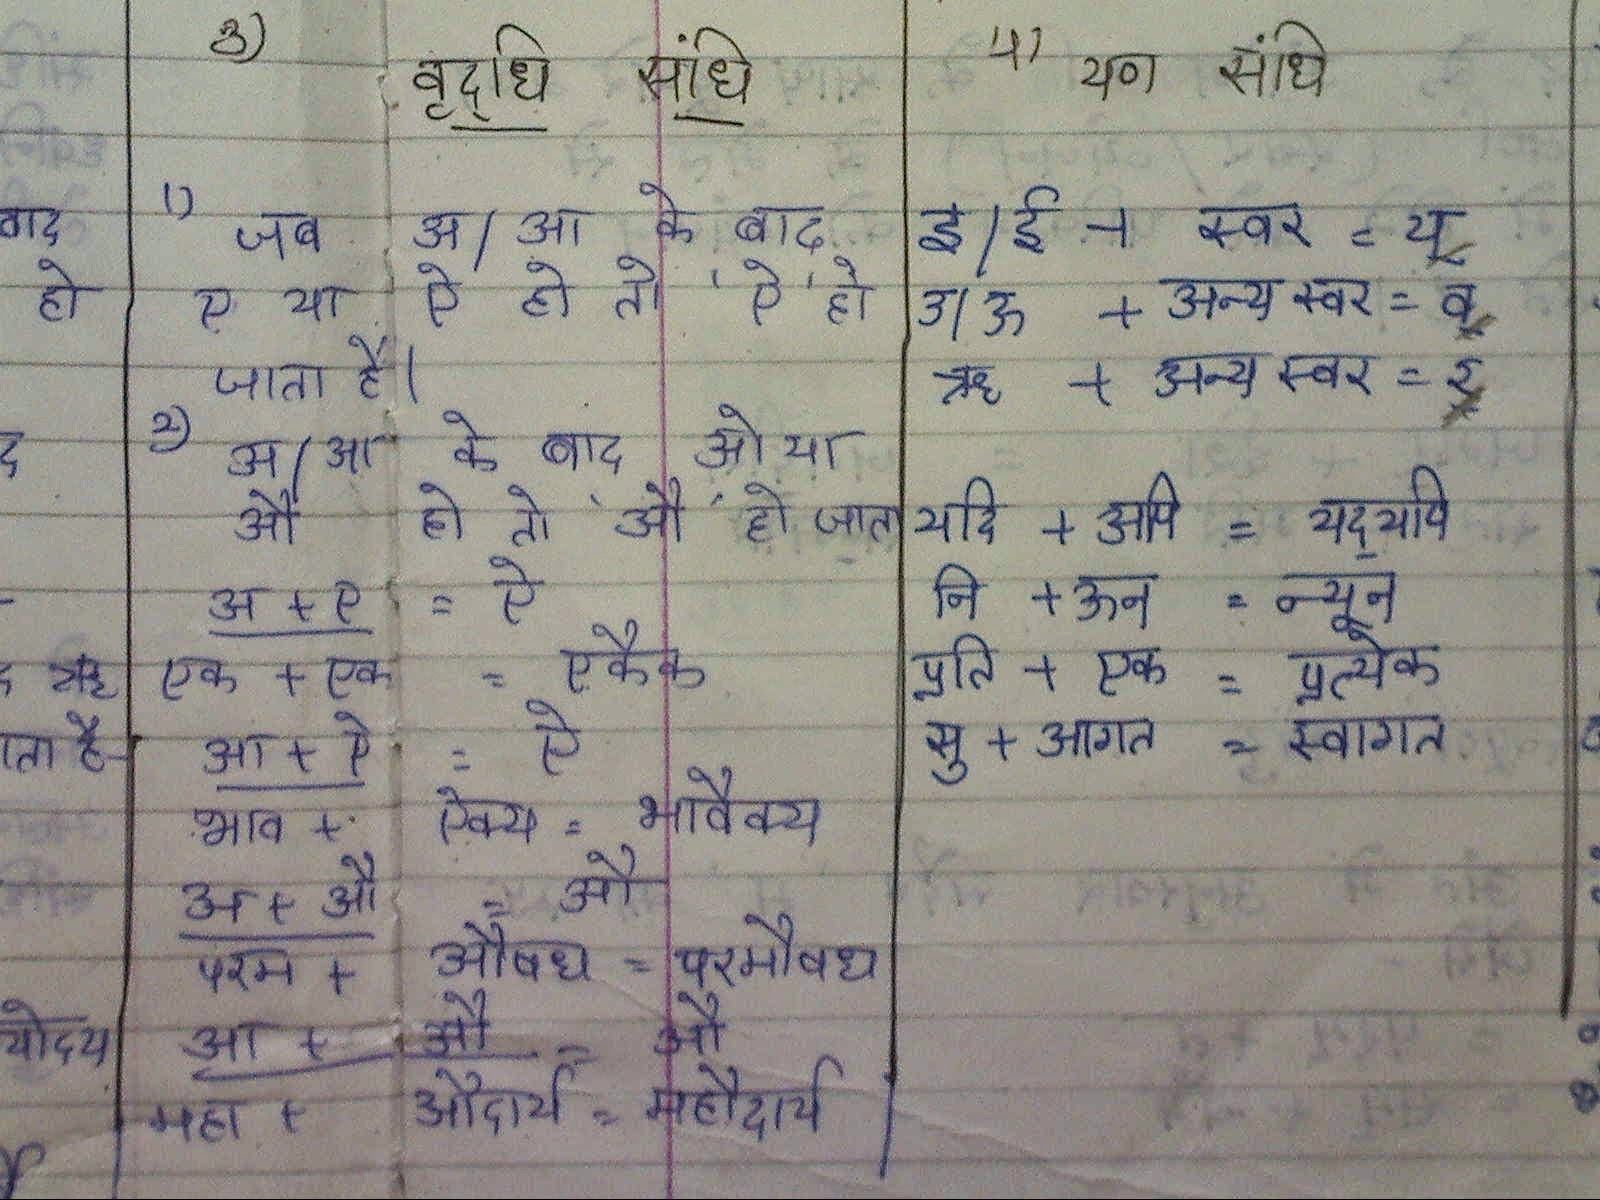 बाद
हो
द
द ऋ
ाता है
योदय
3)
वृद्धि संधि
1) जब अ/आ के बाद
ए या ऐ हो तो 'ऐ' हो
जाता है।
2) अ/आ के बाद ओ या
औ हो तो 'औ' हो जाता
अ + ए = ऐ
एक + एक = एकैक
आ + ऐ = ऐ
भाव + ऐक्य = भावैक्य
अ + औ = औ
परम + औषध = परमौषध
आ + औ = औ
महा + औदार्य = महौदार्य
4) यण संधि
इ/ई + स्वर = य्
उ/ऊ + अन्य स्वर = व्
ऋ + अन्य स्वर = र्
यदि + अपि = यद्यपि
नि + ऊन = न्यून
प्रति + एक = प्रत्येक
सु + आगत = स्वागत